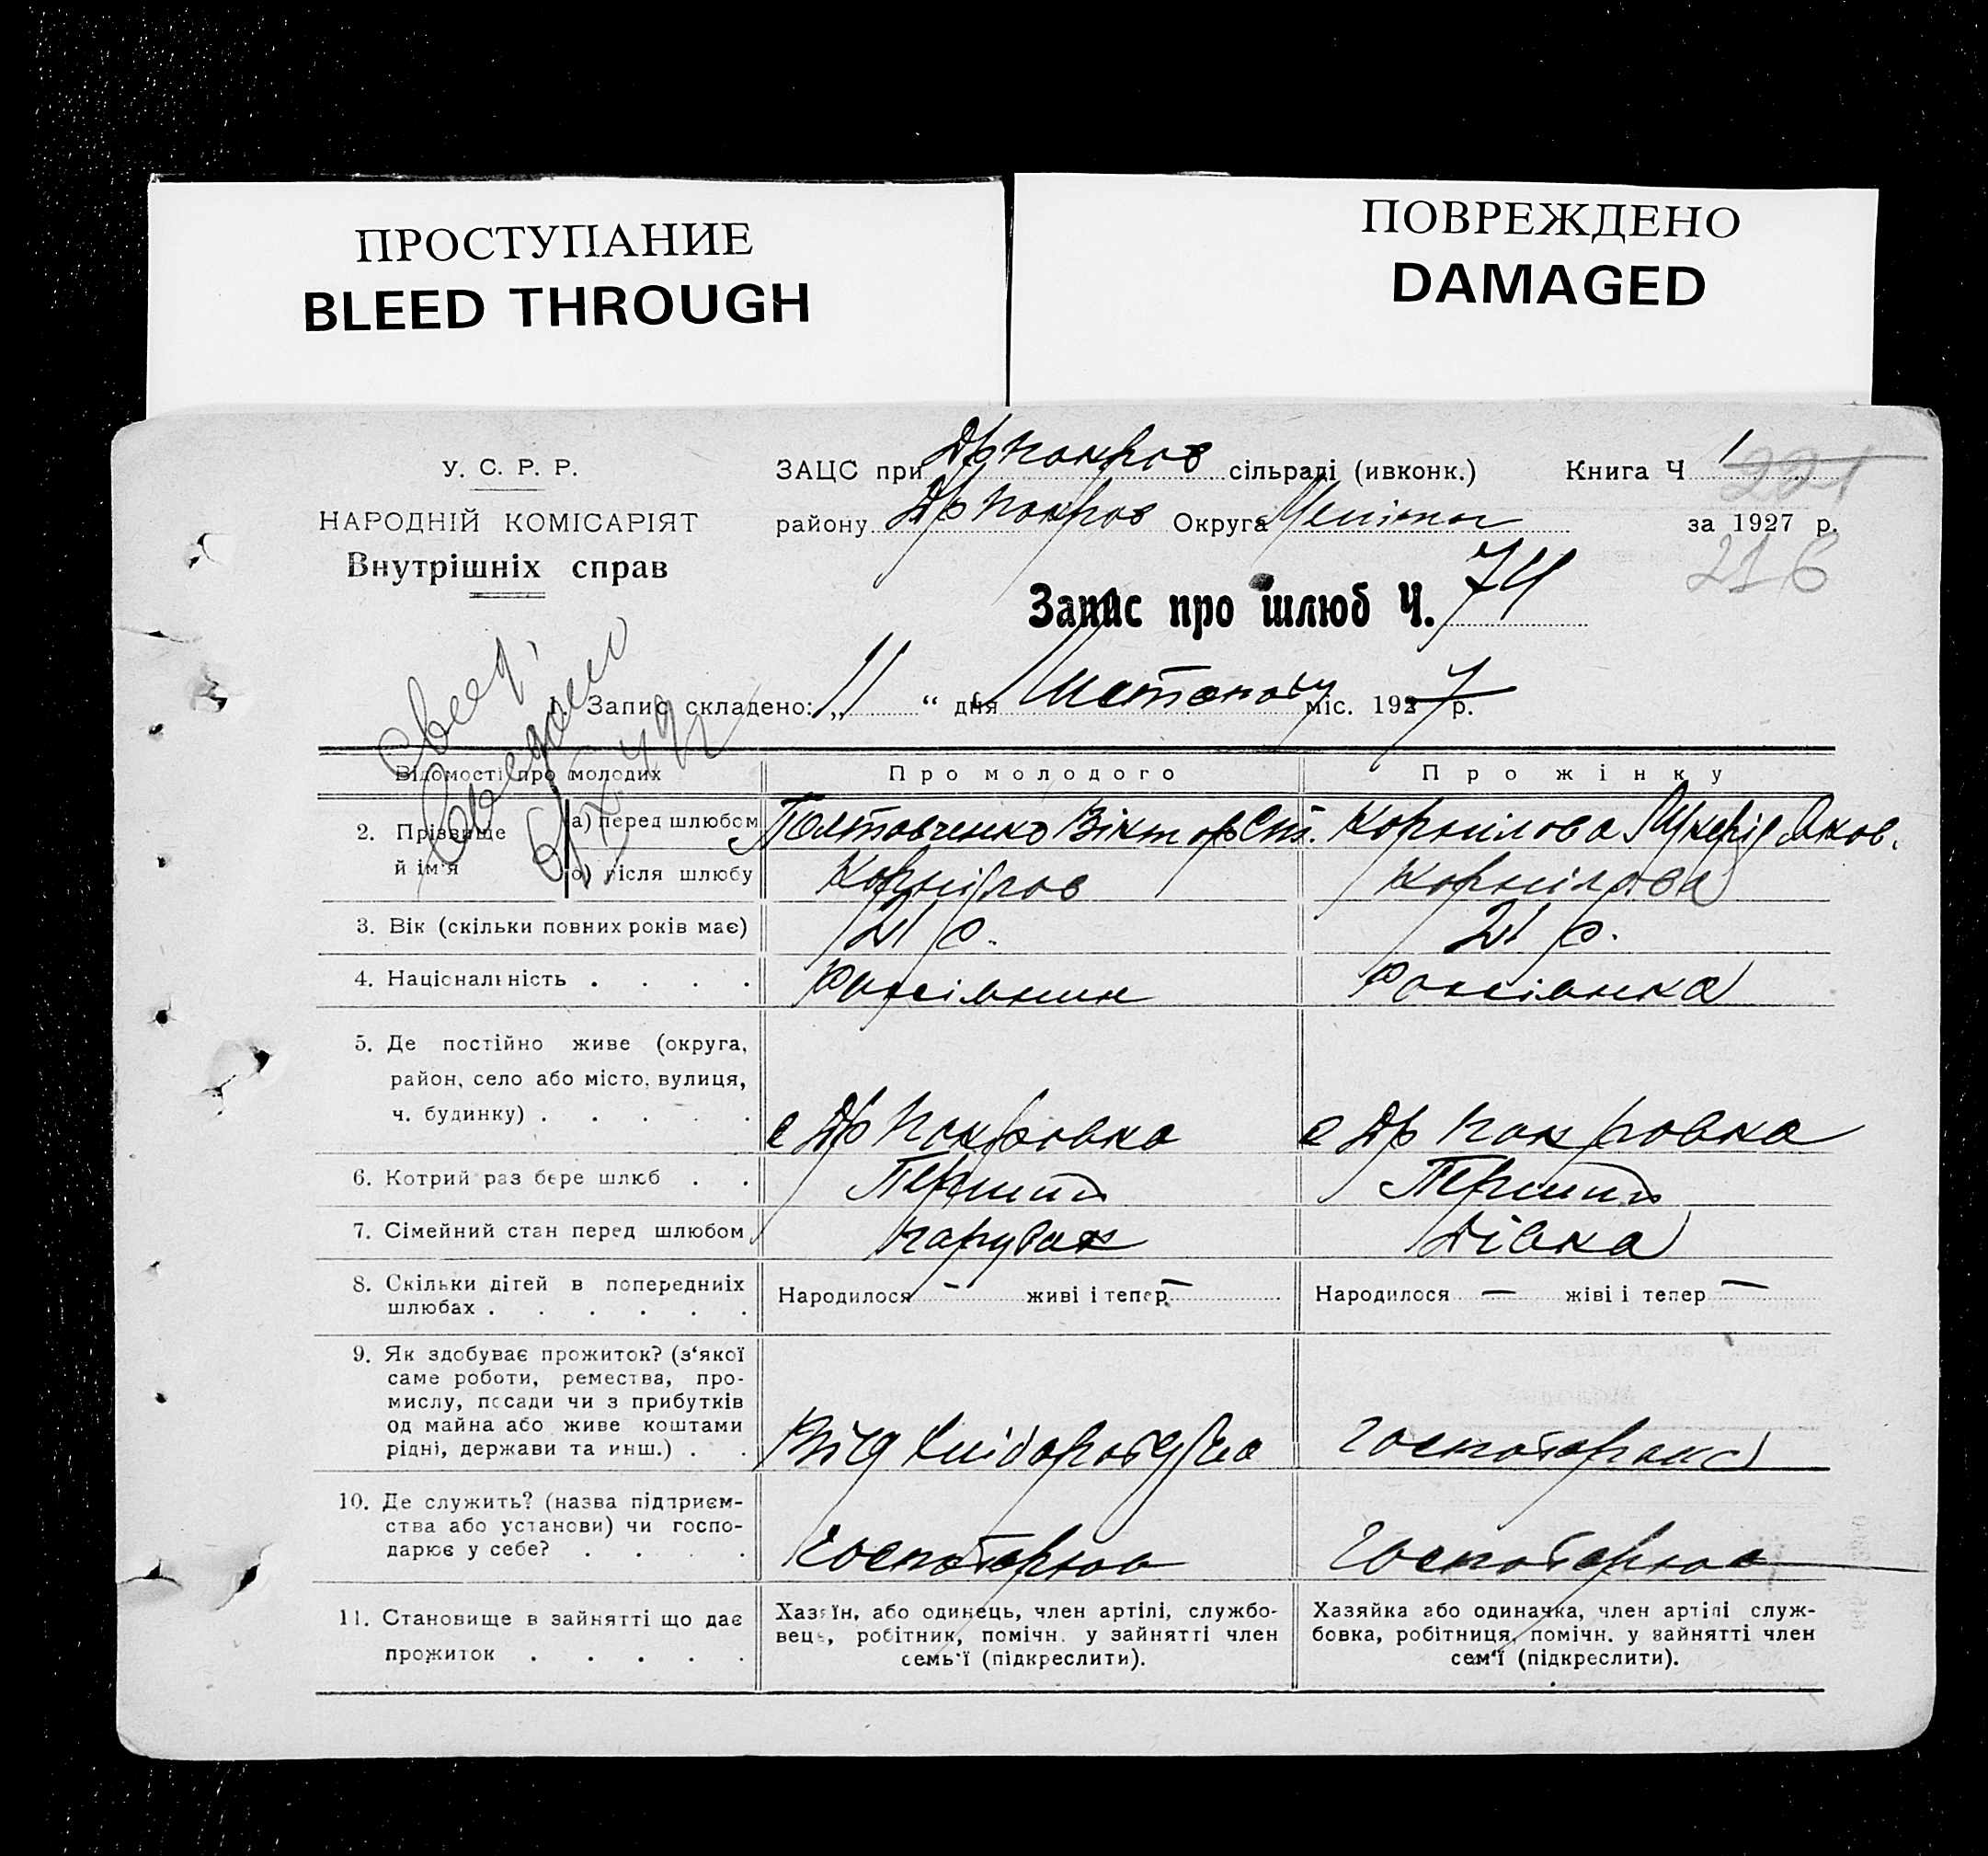 ПРОСТУПАНИЕ
BLEED THROUGH
ПОВРЕЖДЕНО
DAMAGED
У. С. Р. Р.
НАРОДНІЙ КОМІСАРІЯТ
Внутрішніх справ
ЗАЦС при Др Покров сільраді (ивконк.) Книга Ч 1
221
району Др Покров Округа за 1927 р.
216
Запис про шлюб Ч. 74
1. Запис складено: „ 11 “ дня міс. 1927 р.
Відомості про молодих Про молодого Про жінку
2. Прізвище й ім'я
а) перед шлюбом Полтавченко Віктор Ст. Корнілова Яков.
б) після шлюбу Корнілов Корнілова
3. Вік (скільки повних років має) 21 р. 21 р.
4. Національність . . . . Росіянин Росіянка
5. Де постійно живе (округа,
район, село або місто, вулиця,
ч. будинку) . . . . . с Др Покровка с Др Покровка
6. Котрий раз бере шлюб . . Перший Перший
7. Сімейний стан перед шлюбом Парубок Дівка
8. Скільки дітей в попередниіх
шлюбах . . . . . . Народилося — живі і тепер — Народилося — жіві і тепер —
9. Як здобуває прожиток? (з‘якої
саме роботи, ремества, про-
мислу, посади чи з прибутків
од майна або живе коштами
рідні, держави та инш.) . . Від хліборобства
10. Де служить? (назва підприєм-
ства або установи) чи госпо-
дарює у себе? . . . . Господарює Господарює
11. Становище в зайнятті що дає
прожиток . . . . .
Хазяїн, або одинець, член артілі, службо-
вець, робітник, помічн. у зайнятті член
семь‘ї (підкреслити).
Хазяйка або одиначка, член артілі служ-
бовка, робітниця, помічн. у зайнятті член
сем‘ї (підкреслити).